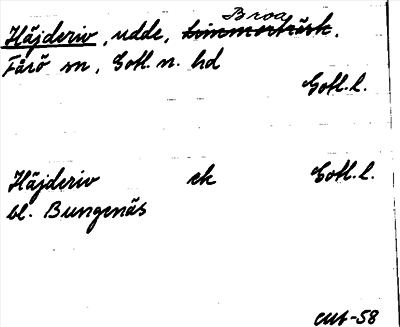 Häjderiv, udde, Broa
Fårö sn, Gotl. n. hd
Gotl. l.
Häjderiv ek Gotl. l.
bl. Bungenäs
-58